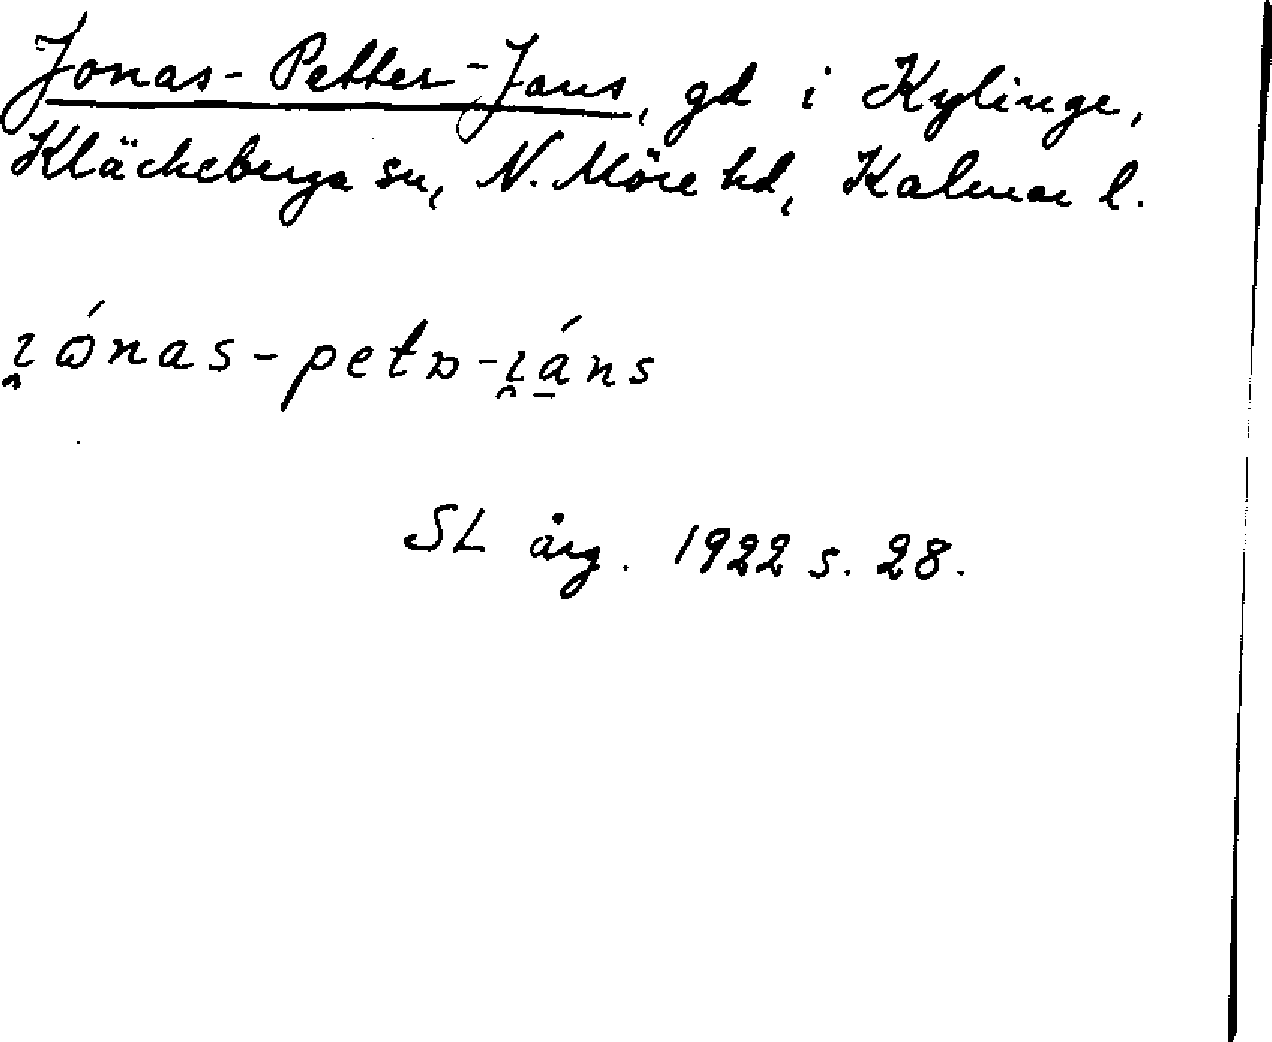 Jonas-Petter-Jans, gd i Kylinge,
Kläckeberga sn, N. Möre hd, Kalmar l.
ɪ̯ónas-petɒ-ɪ̯á̱ns
SL årg. 1922 s. 28.